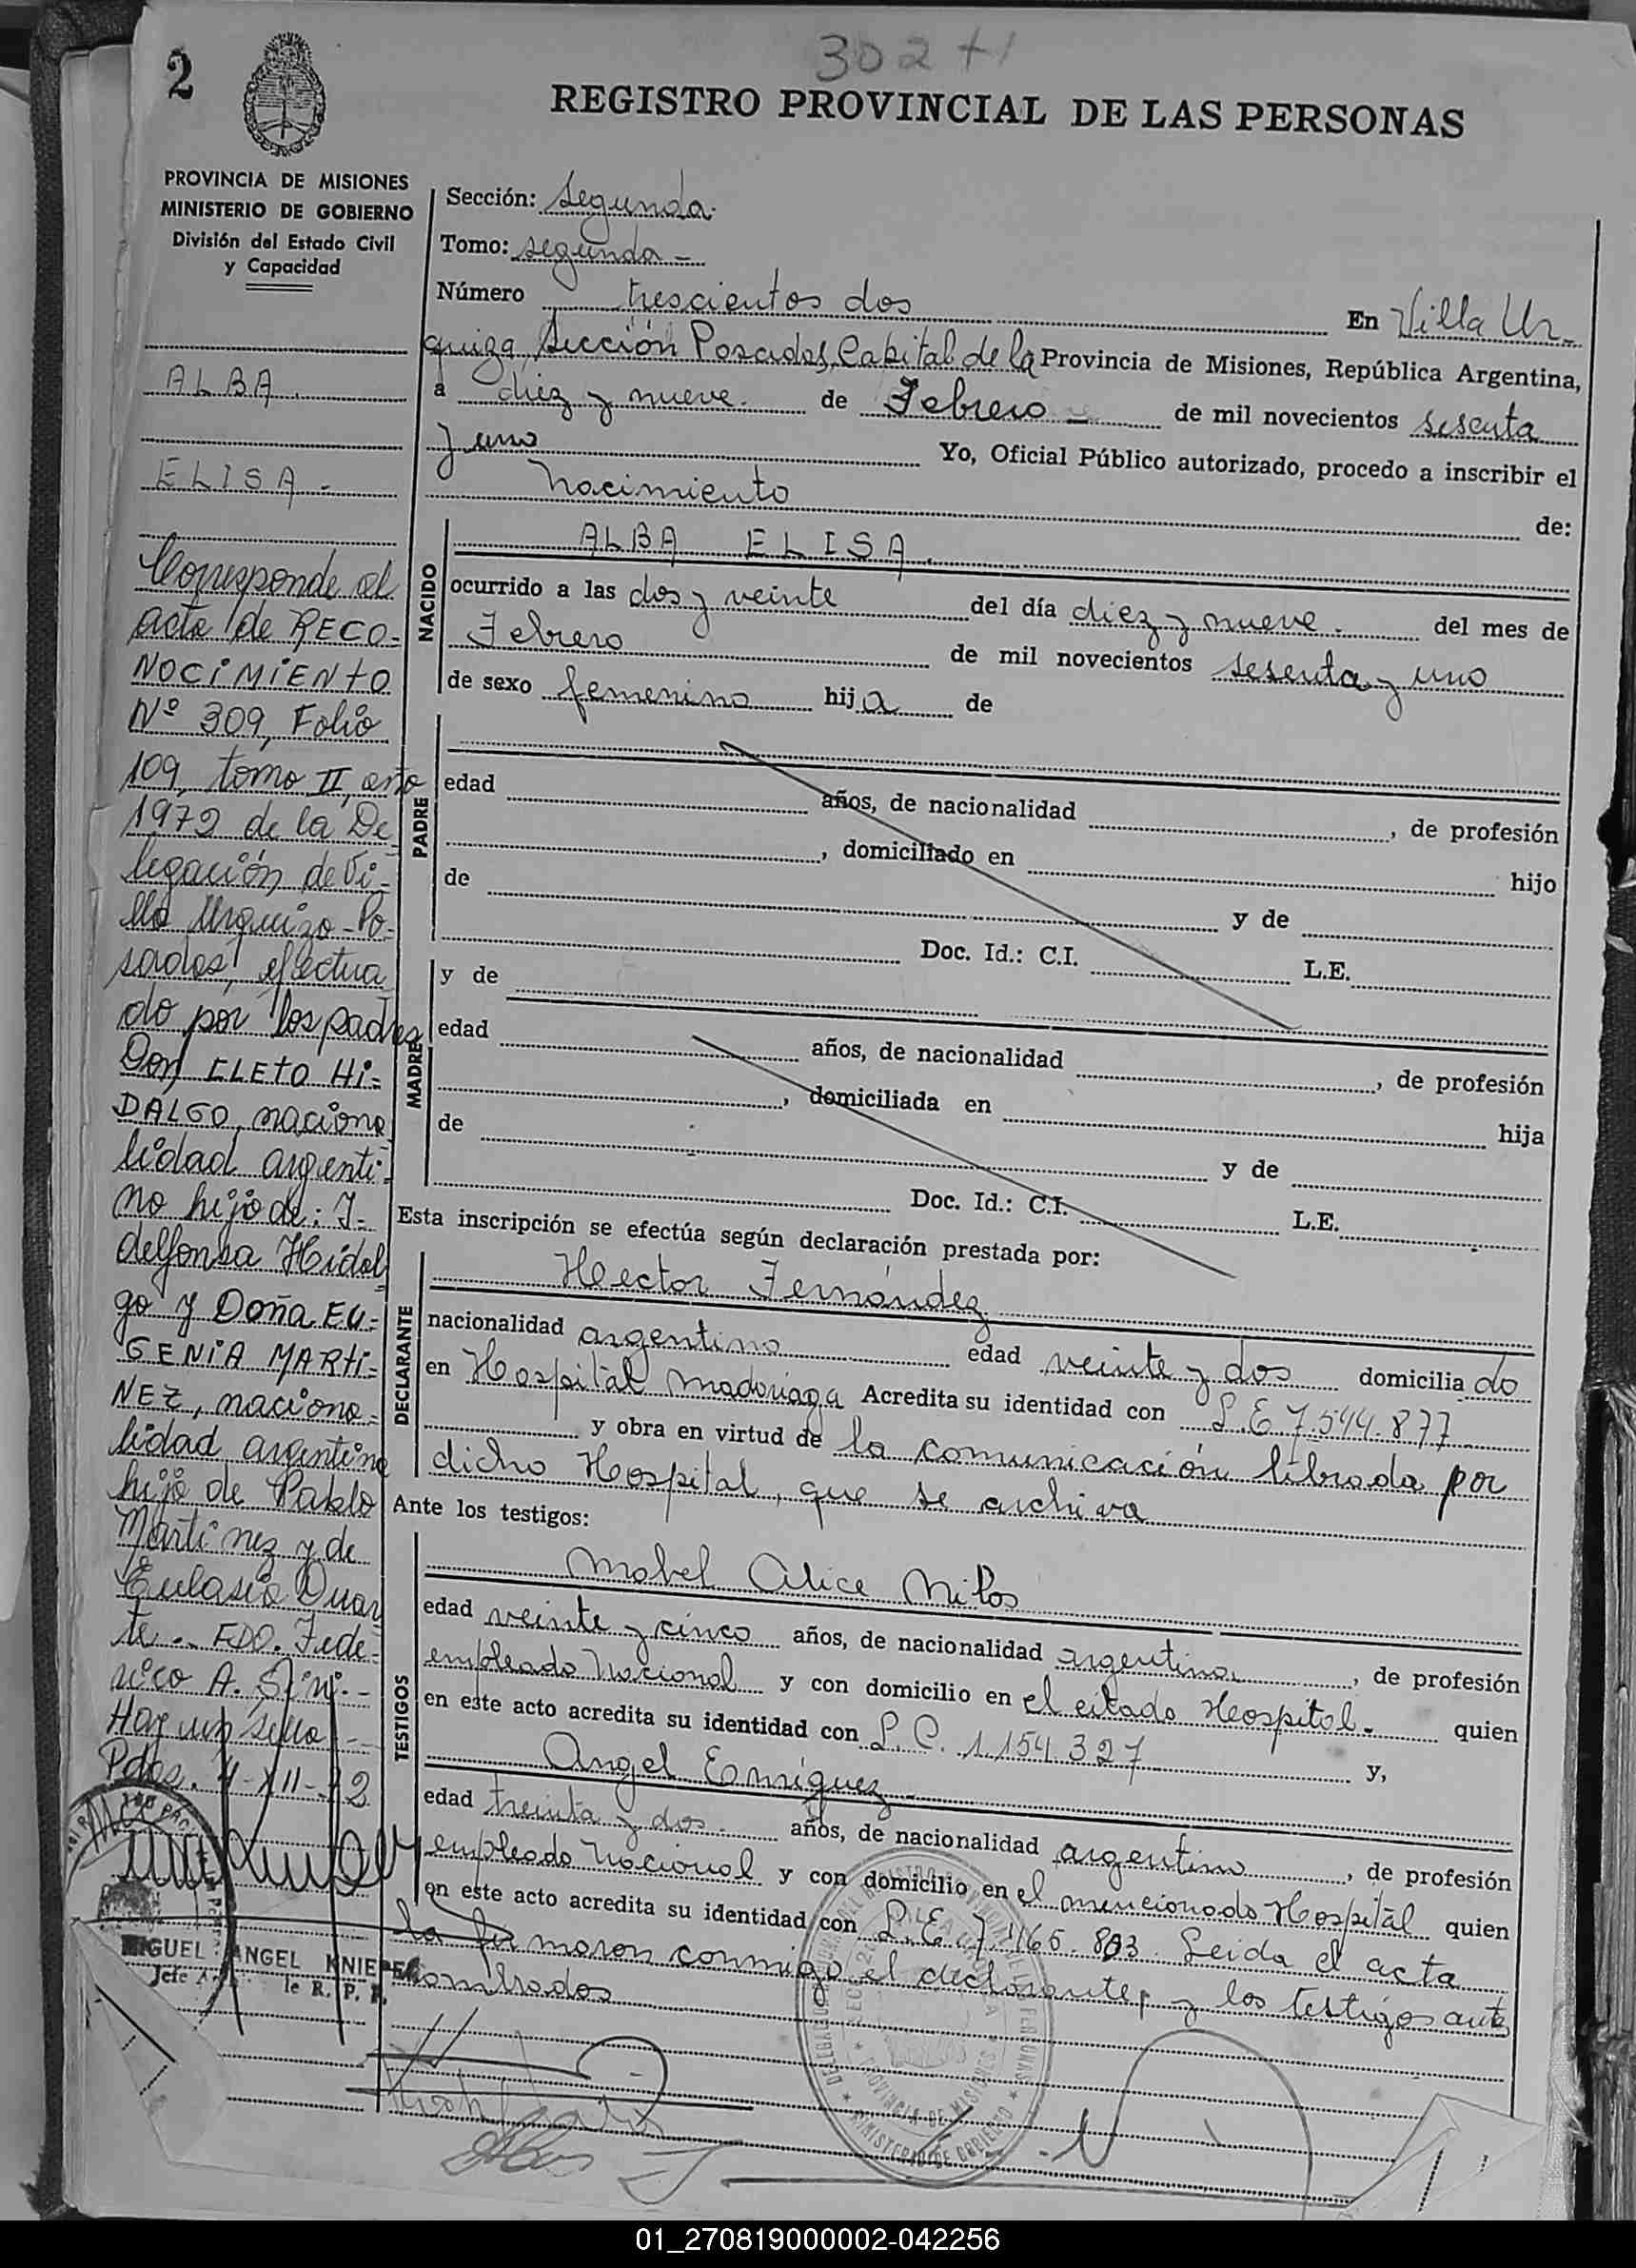 302 + 1
2
REGISTRO PROVINCIAL DE LAS PERSONAS
PROVINCIA DE MISIONES
MINISTERIO DE GOBIERNO
División del Estado Civil
y Capacidad
ALBA
ELISA -
Corresponde al
acta de RECO-
NOCIMIENTO
Nº 309, Folio
109, tomo II, año
1972 de la De-
legación de Vi-
lla Urquiza - Po-
sadas, efectua
do por los padres
Don CLETO HI-
DALGO, naciona
lidad argenti-
no hijo de: I-
delfonsa Hidal
go y Doña EU-
GENIA MARTI-
NEZ, naciona-
lidad argentina
hija de Pablo
Martinez y de
Eulasia Duar
te.- FDO. Fede-
rico A. 
Hay un sello -
Pdas. 4-XII-72
MIGUEL ANGEL KNIEPER
Jefe
R. P. P.
Sección: Segunda.
Tomo: segunda -
Número trescientos dos En Villa Ur-
quiza Sección Posadas, Capital de la Provincia de Misiones, República Argentina,
a diez y nueve. de Febrero - de mil novecientos sesenta
y uno Yo, Oficial Público autorizado, procedo a inscribir el
nacimiento de:
NACIDO
ALBA ELISA.
ocurrido a las dos y veinte del día diez y nueve. del mes de
Febrero de mil novecientos sesenta y uno
de sexo femenino hija de
PADRE
edad años, de nacionalidad , de profesión
, domiciliado en hijo
de y de
Doc. Id.: C.I. L.E.
y de
MADRE
edad años, de nacionalidad , de profesión
, domiciliada en hija
de y de
Doc. Id.: C.I. L.E.
Esta inscripción se efectúa según declaración prestada por:
DECLARANTE
Hector Fernández
nacionalidad argentino edad veinte y dos domiciliado
en Hospital Madariaga Acredita su identidad con L.E 7.544.877
y obra en virtud de la comunicación librada por
dicho Hospital, que se archiva
Ante los testigos:
TESTIGOS
Mabel Alice Milos
edad veinte y cinco años, de nacionalidad argentina , de profesión
empleada Nacional y con domicilio en el citado Hospital. quien
en este acto acredita su identidad con L.C. 1.154.327 y,
Angel Enriquez.
edad treinta y dos. años, de nacionalidad argentino , de profesión
empleado Nacional y con domicilio en el mencionado Hospital quien
en este acto acredita su identidad con L.E. 7.465.803. Leida el acta
la firmaron conmigo el declarante, y los testigos ante
nombrados
01_270819000002-042256